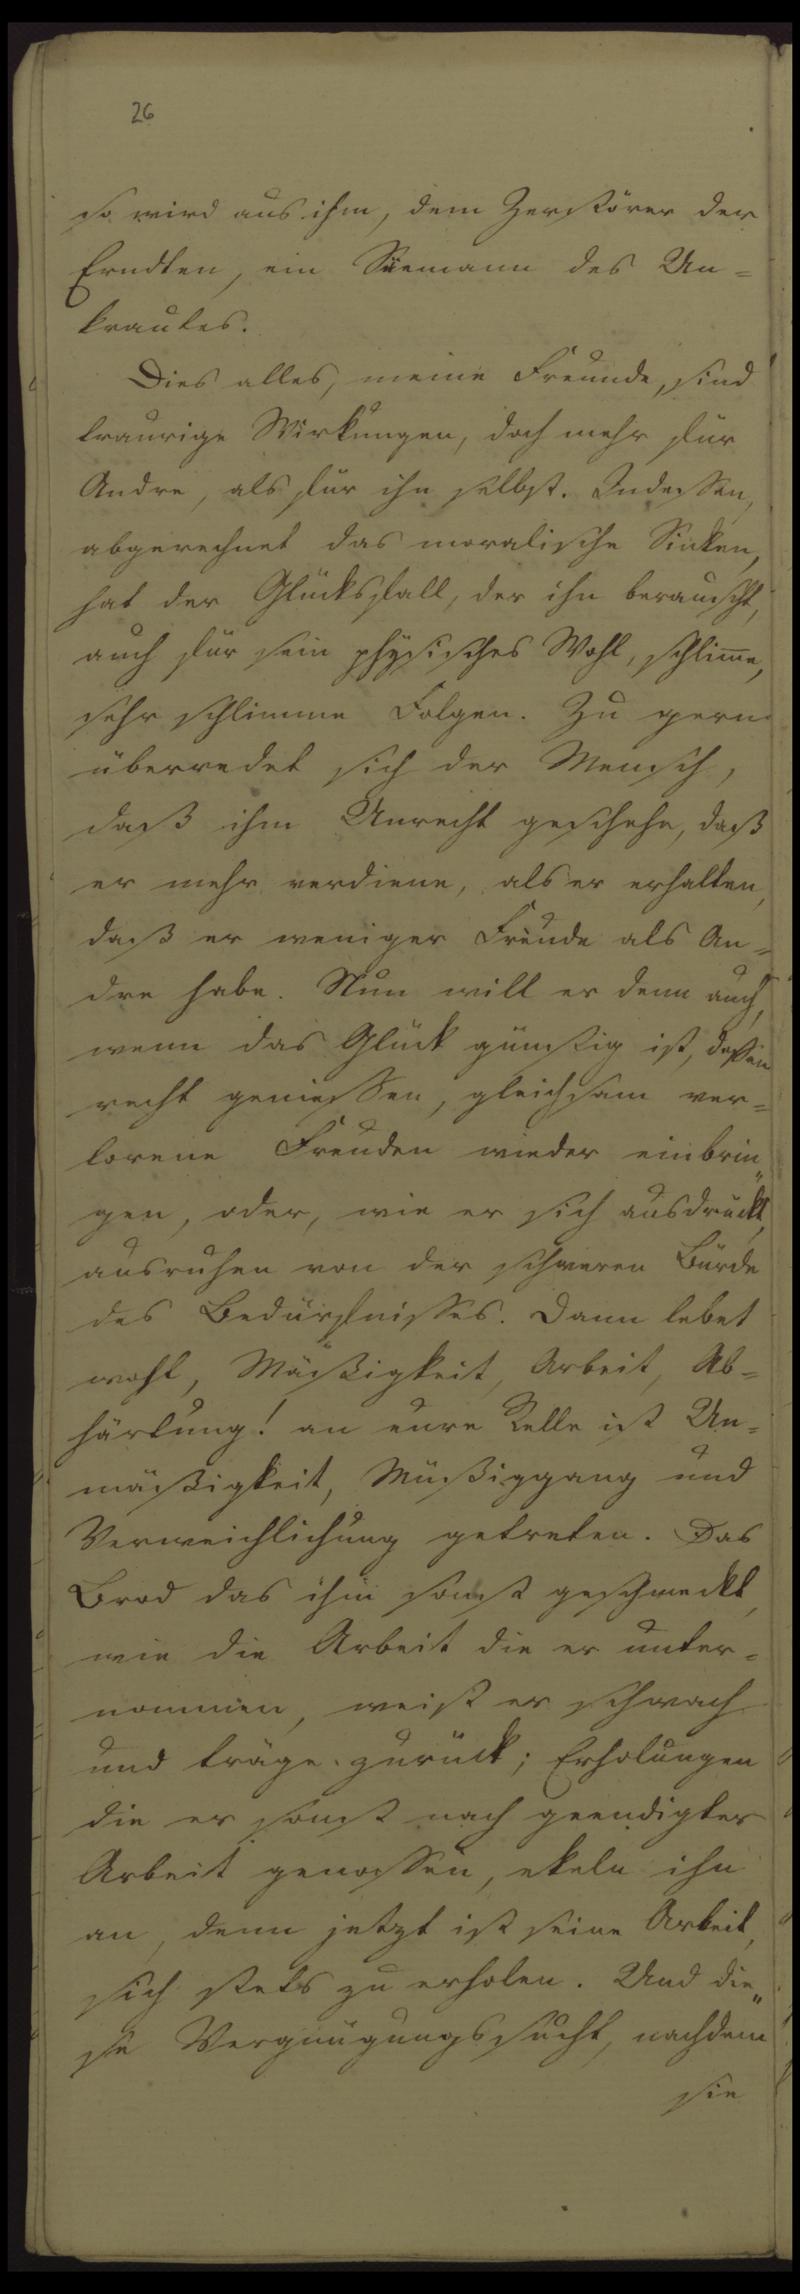 26
so wird aus ihm, dem Zerstörer der
Erndten, ein Säemann des Un=
krautes.
Dies alles, meine Freunde, sind
traurige Wirkungen, doch mehr für
Andre, als für ihn selbst. Indessen,
abgerechnet das moralische Sinken,
hat der Glücksfall, der ihn berauscht,
auch für sein physisches Wohl, schlim̄e,
sehr schlimme Folgen. Zu gern
überredet sich der Mensch,
daß ihm Unrecht geschehe, daß
er mehr verdiene, als er erhalten,
daß er weniger Freude als An=
dre habe. Nun will er denn auch,
wenn das Glück günstig ist, dessen
recht geniessen, gleichsam ver=
lorene Freuden wieder einbrin„
gen, oder, wie er sich ausdrückt,
ausruhen von der schweren Bürde
des Bedürfnisses. Dann lebet
wohl, Mäßigkeit, Arbeit, Ab=
härtung! an eure Stelle ist Un=
mäßigkeit, Müßiggang und
Verweichlichung getreten. Das
Brod das ihm sonst geschmeckt,
wie die Arbeit die er unter=
nommen, weist er schwach
und träge zurück; Erholungen
die er sonst nach geendigter
Arbeit genossen, ekeln ihn
an, denn jetzt ist seine Arbeit,
sich stets zu erholen. Und die„
se Vergnügungssucht, nachdem
sie